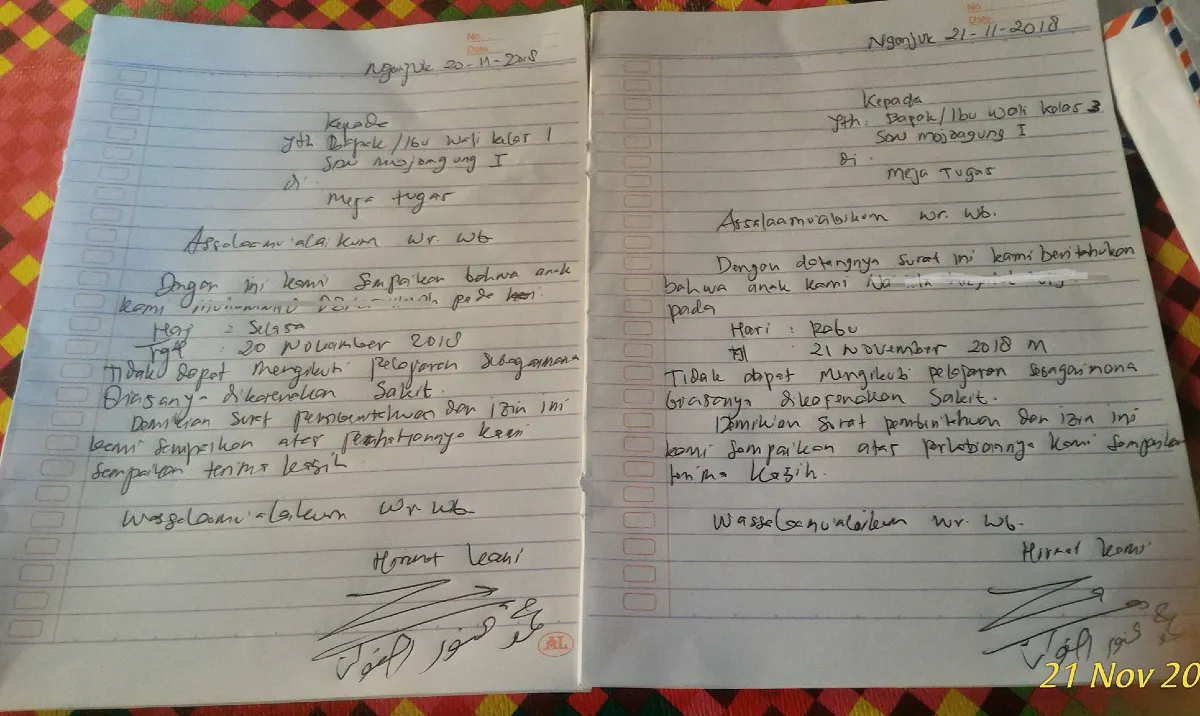 No
Date
Nganjuk 20-11-2018
Kepada
Yth. Bapak/Ibu Wali kelas 1
SDN Mojoagung I
di.
Meja tugas
Assalaamu'alaikum Wr. Wb
Dengan ini kami Sampaikan bahwa anak
kami pada
Hari : Selasa
Tgl : 20 November 2018
Tidak dapat Mengikuti pelajaran Sebagaimana
Biasanya dikarenakan Sakit.
Demikian Surat pemberitahuan dan izin ini
kami Sampaikan atas perhatiannya kami
Sampaikan terima kasih.
Wassalaamu'alaikum Wr. Wb
Hormat kami
AL
No
Date
Nganjuk 21-11-2018
Kepada
Yth. Bapak/Ibu Wali kelas 3
SDN Mojoagung I
di.
Meja Tugas
Assalaamualaikum Wr. Wb.
Dengan datangnya Surat ini kami beritahukan
bahwa anak kami
pada
Hari : Rabu
Tgl : 21 November 2018 M
Tidak dapat Mengikuti pelajaran Sebagaimana
biasanya dikarenakan Sakit.
Demikian Surat pemberitahuan dan izin ini
kami Sampaikan atas perhatiannya kami Sampaikan
terima kasih.
Wassalaamualaikum Wr. Wb.
Hormat kami
21 Nov 20